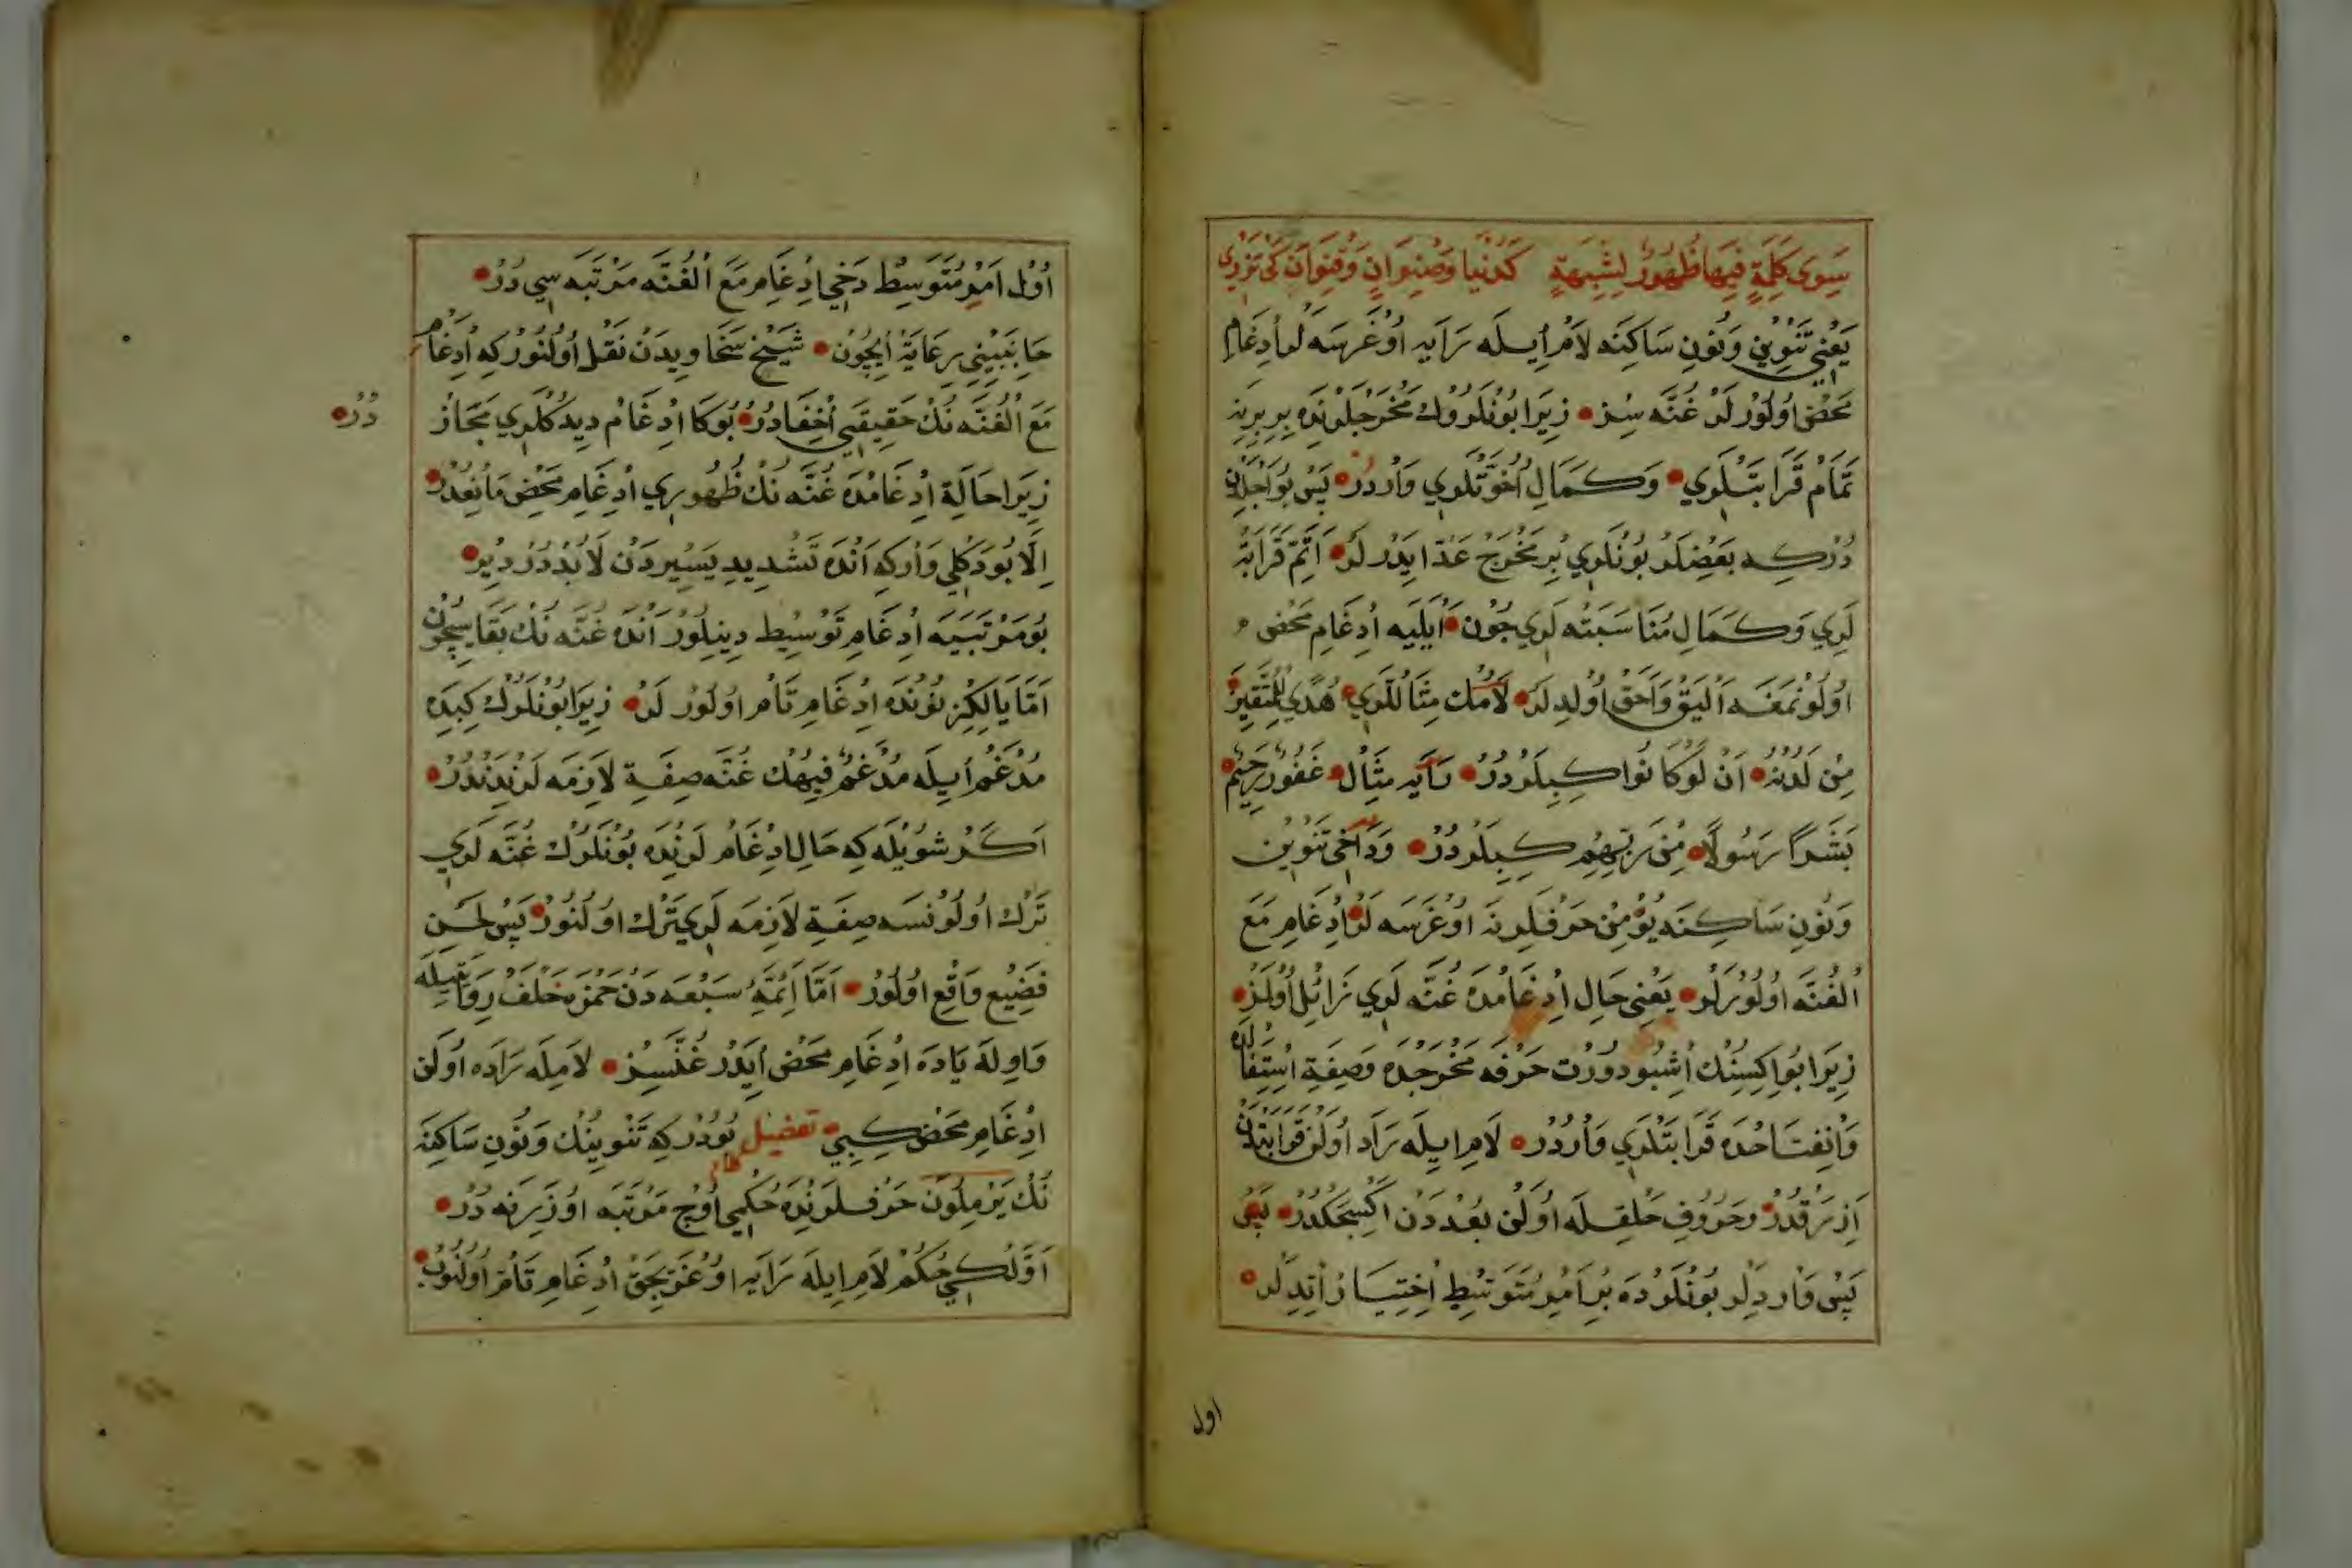 سِوَى كَلِمَةٍ فِيهَا ظُهُورٌ لِشِبْهَةٍ كَدُنْيَا وَصِنْوَانٍ وَقِنْوَانٍ كَىْ تَرْدِى
يَعْنِي تَنْوِين وَنُونِ سَاكِنَه لَامْ اِيلَه رَايَه اُوغْرَسَه لَرْ اِدْغَامِ
مَحْض اُولُورْلَرْ غُنَّه سِز زِيرَا بُونْلَرُوكْ مَخْرَجْلَرِنْدَه بِرِ بِرِينَه
تَمَامْ قَرَابَتْلَرِي وَكَمَالِ اُخُوَّتْلَرِي وَارْدُرْ پَسْ بُو اَجِلْدَنْ
دُرْكِه بَعْضِلَرْ بُونْلَرِي بِرْ مَخْرَجْ عَدّ اِيدَرْلَرْ اَتَمّ قَرَابَتْ
لَرِي وَكَمَالِ مُنَاسَبَتْلَرِي چُونْ اُيْلَيَه اِدْغَامِ مَحْضِ
اُولُونْمَغَه اَلْيَقْ وَاَحَقْ اُولْدِلَرْ لَامُكْ مِثَاللَرِي هُدًي لِلْمُتَّقِينَ
مِنْ لَدُنْهُ اَنْ لَوْ كَانُوا كِبِيلَرْدُرْ رَايَه مِثَالْ غَفُورٌ رَحِيمٌ
بَشَرًا رَسُولًا مِنْ رَبِّهِمْ كِبِيلَرْدُرْ وَدَاخِي تَنْوِين
وَنُونِ سَاكِنَه يُؤْمِنْ حَرْفْلَرِنَه اُوغْرَسَه لَرْ اِدْغَامِ مَعَ
الْغُنَّه اُولُورْلَرْ يَعْنِي حَالِ اِدْغَامْدَه غُنَّه لَرِي زَائِل اُولْمَزْ
زِيرَا بُو اِكِسِنُكْ اُشْبُو دُورْت حَرْفَه مَخْرَجْدَه وَصِفَةِ اِسْتِفَالْدَه
وَاِنْفِتَاحْدَه قَرَابَتْلَرِي وَارْدُرْ لَامِ اِيلَه رَادَ اُولَنْ قَرَابَتْدَنْ
اَزْرَقْدُرْ وَحَرُوفِ حَلْقِلَه اُولَنْ بُعْدْ دَنْ اَكْسِجَكْدُرْ پَسْ
پَسْ وَارْدِلَرْ بُونْلَرْدَه بِرْ اَمْرِ مُتَوَسِّطِ اِخْتِيَارْ اِتْدِلَرْ
اول
اُولْ اَمْرِ مُتَوَسِّطْ دَخِي اِدْغَامِ مَعَ الْغُنَّه مَرْتَبَه سِي دُرْ
جَانِبَيْنِي رِعَايَةْ اِيچُونْ شَيْخْ سَخَاوِيدَنْ نَقْل اُولُنُورْ كِه اِدْغَامِ
مَعَ الْغُنَّه نُكْ حَقِيقَتِي اِخْفَادُرْ بُوكَا اِدْغَامْ دِيدُكْلَرِي مَجَازْ
دُرْ
زِيرَا حَالَةِ اِدْغَامْدَه غُنَّه نُكْ ظُهُورِي اِدْغَامِ مَحْضِ مَانِعْدُرْ
اِلَّا بُودَكْلِي وَارْكِه اَنْدَه تَشْدِيدِ يَسِيرْدَنْ لَابُدْدُرْ دِيرْ
بُو مَرْتَبَيَه اِدْغَامِ تَوَسِيط دِينِلُورْ اَنْدَه غُنَّه نُكْ بَقَاسِيچُونْ
اَمَّا يَالِكِزْ نُونْدَه اِدْغَامِ تَامْ اُولُورْلَرْ زِيرَا بُونْلَرُكْ كِبِدَه
مُدْغَمْ اِيلَه مُدْغَمٌ فِيهُكْ غُنَّه صِفَةِ لَازِمَه لَرِنْدَنْدُرْ
اَكَرْ شُويْلَه كِه حَالِ اِدْغَامْلَرِنْدَه بُونْلَرُكْ غُنَّه لَرِي
تَرْك اُولُونْسَه صِفَةِ لَازِمَه لَرِي تَرْك اُولُنُورْ پَسْ لَحْنِ
فَضِيع وَاقِع اُولُورْ اَمَّا اَئِمَّهِ سَبْعَه دَنْ حَمْزَه خَلَفْ رِوَايَتِيلَه
وَاوِلَه يَادَه اِدْغَامِ مَحْض اِيدَرْ غُنَّسِزْ لَامِلَه رَادَه اُولَن
اِدْغَامِ مَحْض كِبِي تفضيل بُودُرْ كِه تَنْوِينُكْ وَنُونِ سَاكِنَه
نُكْ يَرْمِلُونَ حَرْفْلَرِنْدَه حُكْمِي اُوچْ مَرْتَبَه اُوزَرِنَه دُرْ
اَوَّلْكِي حُكْمْ لَامِ اِيلَه رَايَه اُوغْرَيِجَقْ اِدْغَامِ تَامْ اُولُنُورْ